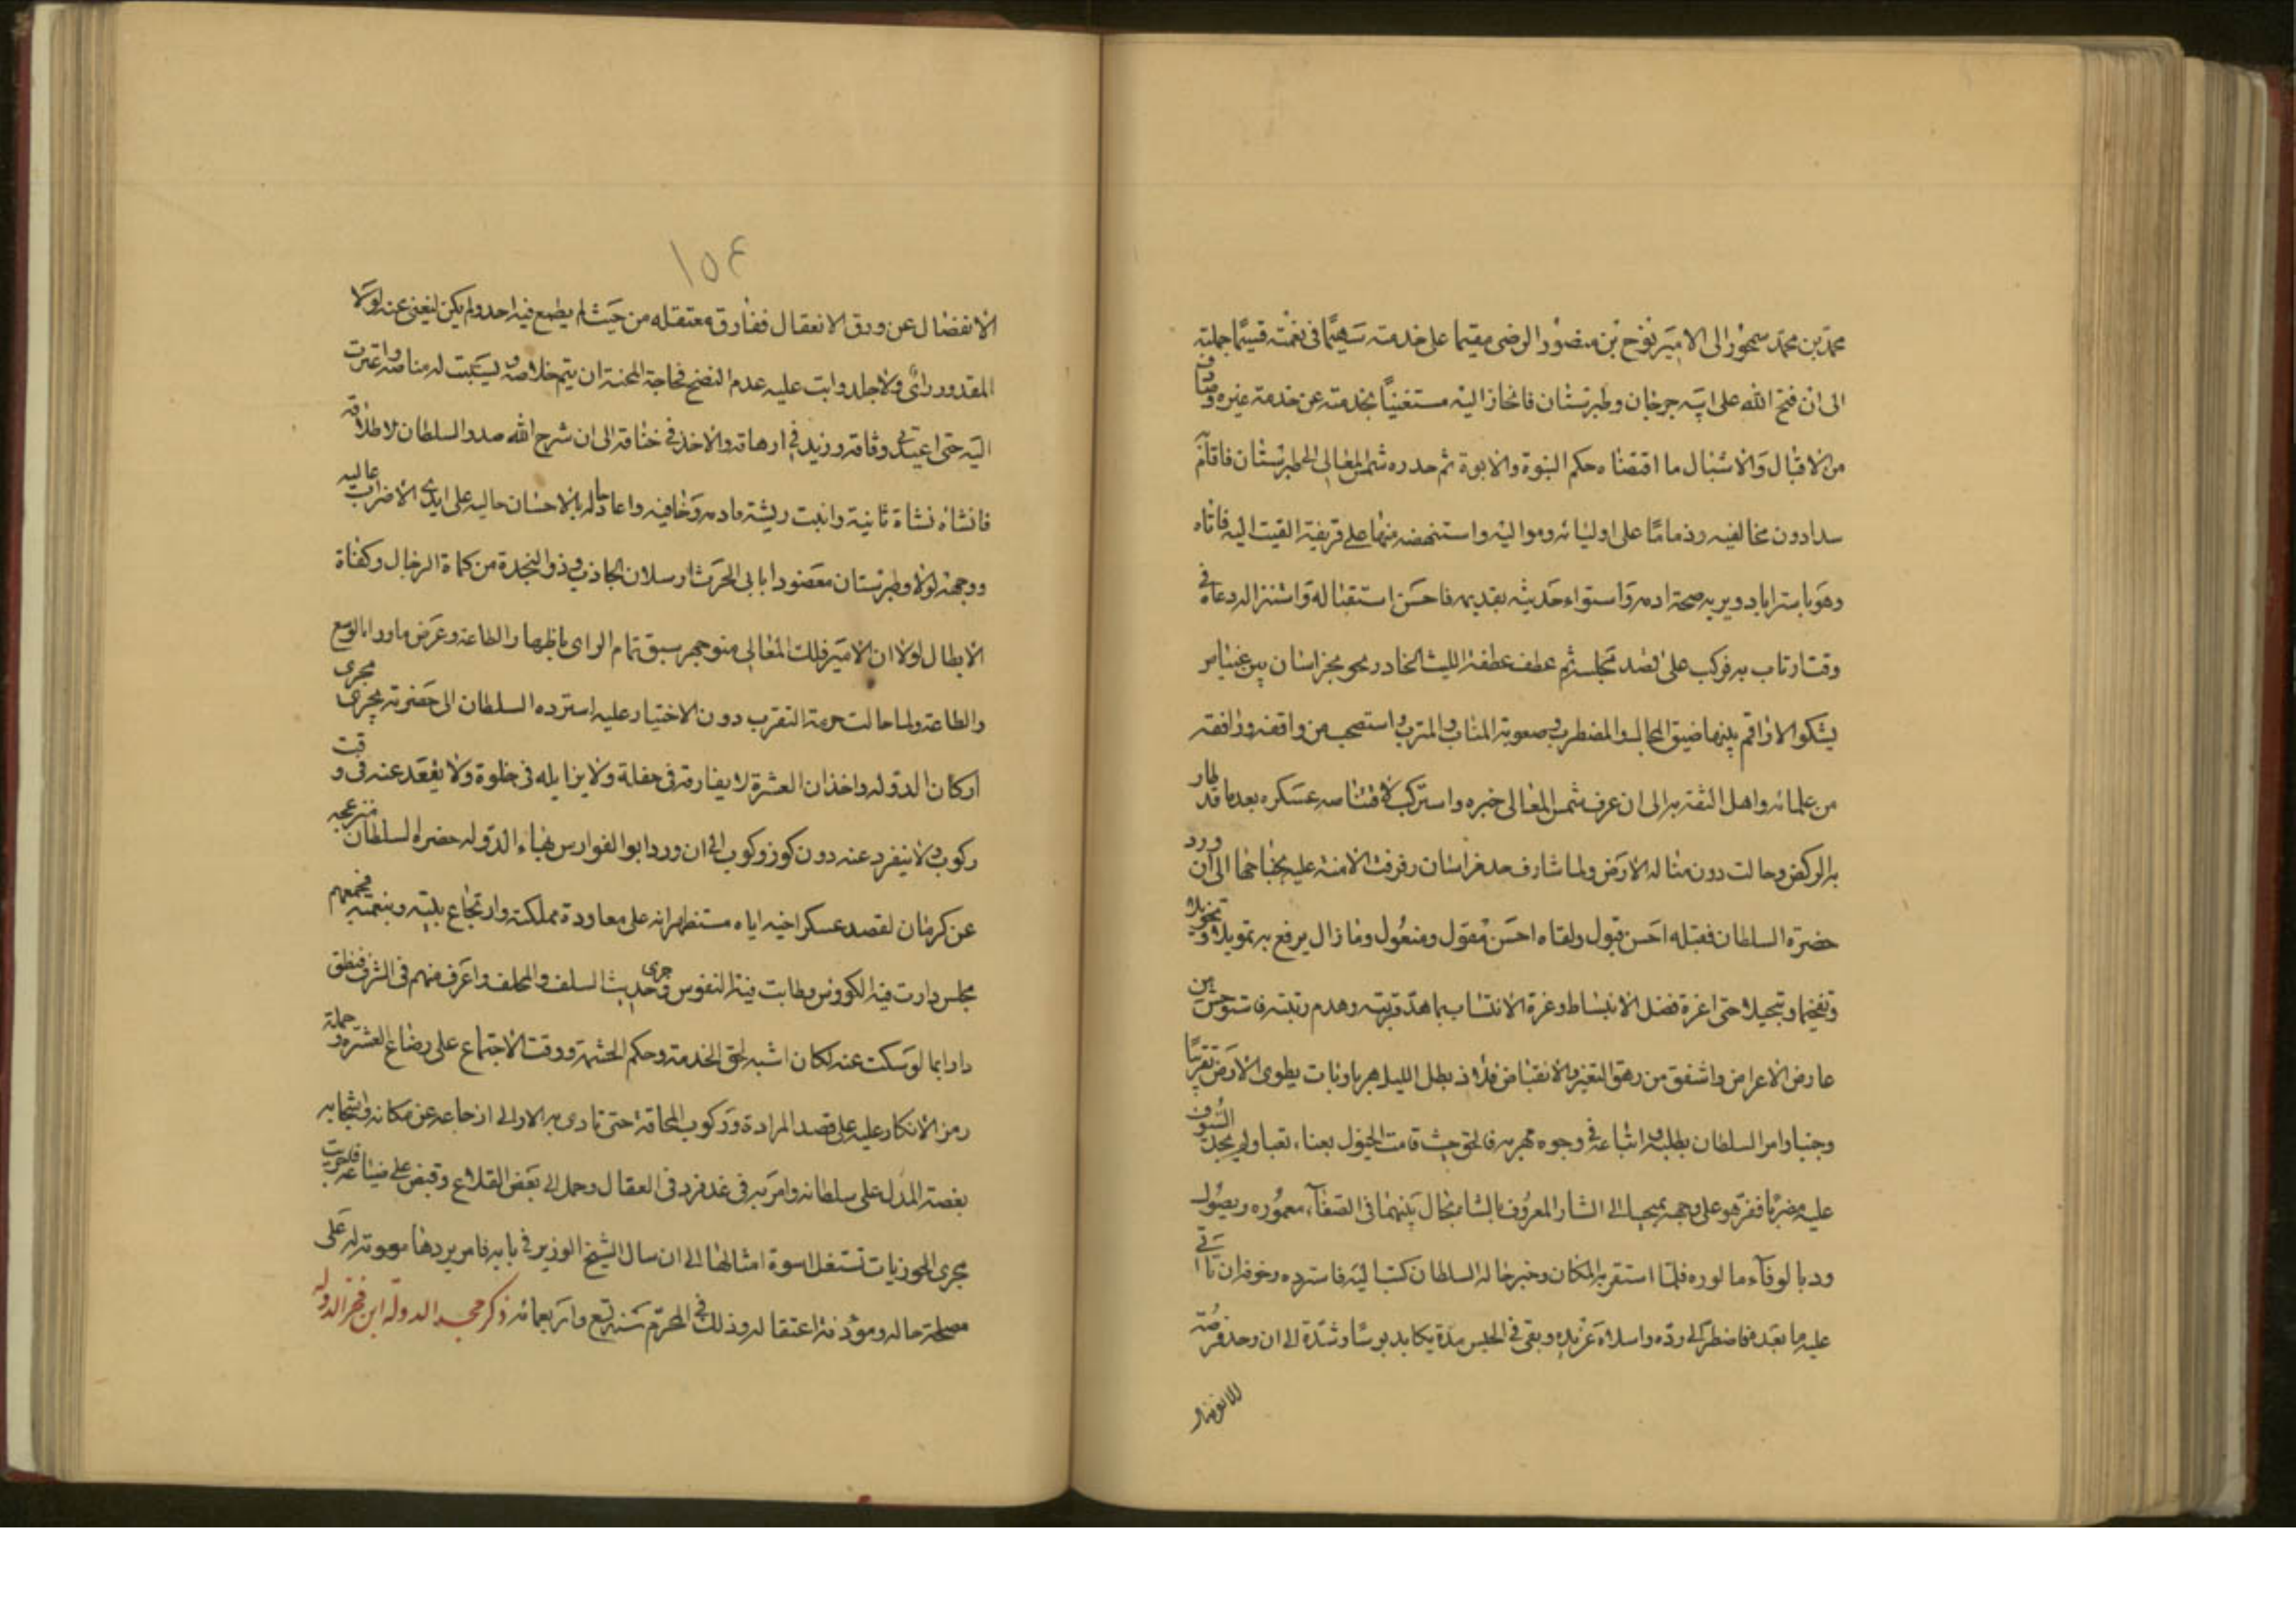 محمد بن محمد سمجور الى الامير نوح بن منصور الرضى مقيما على خدمته سهيمًا فى نعمته قسيمًا جملته
الى ان فتح الله على ابيه جرجان وطبرستان فانحاز اليه مستغنيًا بخدمته عن خدمة غيره وصادف
من الاقبال والاشبال ما اقتضاه حكم البنوة والابوة ثم حدره شمس المعالى الى طبرستان فاقام
سدادون مخالفيه وذمامًا على اوليائه ومواليه واستنهضه منها على قريفة القيت اليه فاتاه
وهو باستراباد ويريه صحة ادمه واستواء حديثه بقديمه فاحسن استقباله واستنزاله ودعاه فى
وقت ارتاب به فركب على قصد مجلسه ثم عطف عطفة الليث الخادر نحو خراسان بين غياض
يشكو الاراقم بينها ضيق المجال والمضطرب وصعوبة المنساب والمتسرب واستصحب من واقفه ووافقه
من غلمانه واهل الثقة به الى ان عرف شمس المعالى خبره واستركب لاقتناصه عسكره بعدما قد طار
به الركض وحالت دون مناله الارض ولما شارف حد خراسان رفرفت الامنة عليه بجناحها الى ان ورد
حضرة السلطان فقبله احسن قبول ولقاه احسن مقول ومفعول وما زال يرفع به تمويلا وتخويلا
وتفخيما وتبجيلا حتى اغرة فضل الانبساط وغرة الانتساب بما هدّ قربته وهدم رتبته فاستوحش من
عارض الاعراض واشفق من رهق التغير والانقباض فلاذ بظل الليل هربا وبات يطوى الارض تقريبًا
وجنبا وامر السلطان بطلبه واتباعه فى وجوه مهربه فالحق حيث قامت الخيول بعناء، تعبا ولم يجد السيوف
عليه مضربًا ففرّ هو على وجهه بمجيبا الى الشار المعروف بالشاه بحال بينهما فى الصفآء معموره ويصول
ود بالوفآء ما لوره فلما استقر به المكان وخبر حاله السلطان كتب اليه فاسترده وخوفه ان تاتى
عليه ما بعده فاضطر الى رده واسلاه عن يده وبقى فى الحبس مدة يكابد بوسًا وشدّة الى ان وجد فرصة
للانفصال
١٥٤
الانفصال عن ورق الانعقال ففارق معتقله من حيث لم يطمع فيه احد ولم يكن ليغنى عنه لولا
المقدور راى ولا جلد وابت عليه عدم النضج فحاجة المحنة ان يتم خلاصه ويستتب له مناصه واعترت
اليه حتى اعيد الى وثاقه وزيد فى ارهاقه والاخذ فى خناقه الى ان شرح الله صدر السلطان لاطلاقه
فانشاه نشاة ثانية وانبت ريشه قادمه وخافيه واعاد له بالاحسان حاليه على ايدى الاضراب عاليه
ووجهه لولاة طبرستان معضودا بابى الحرث ارسلان الجاذب وذو النجدة من كماة الرجال وكفاة
الابطال لولا ان الامير فلك المعالى منوجهر سبق تمام الراى باظهار الطاعة وعرض ماورا بالوسع
والطاعة ولما حالت حرمة التقرب دون الاختيار عليه استرده السلطان الى حضرته يجرى مجرى
اركان الدولة واخذان العشرة لا يفارقه فى حفلة ولا يزايله فى خلوة ولا يقعد عنه فى وقت
ركوب ولا ينفرد عنه دون كوز وكوب الى ان ورد ابو الفوارس بهاء الدولة حضرة السلطان منزعجه
عن كرمان لقصد عسكر اخيه اياه مستظهرا به على معاودة مملكته وارتجاع بيته ونعمته فجمعهم
مجلس دارت فيه الكووس وطابت فيه النفوس وجرى حديث السلف والخلف واعرف منهم فى الشرف فنطق
دارا بما لو سكت عنه لكان اشبه لحق الخدمة وحكم الحشمة ووقت الاجتماع على رضاع العشرة وحملة
رمز الانكار عليه على قصد المرادة وركوب المحاقة حتى تادى به الامر الى ازعاجه عن مكانه واشجابه
بغصة المدل على سلطانه وامر به فى غد فزد فى العقال وحمل الى بعض القلاع وقبض على ضياعه فلحوت
مجرى المحوزيات تستغل اسوة امثالها الى ان سال الشيخ الوزير فى بابه فامر بردها معونة له على
مصلحة حاله وموذنة اعتقاله وذلك فى المحرم سنة تسع واربعمائه ذكر مجد الدولة ابن فخر الدوله